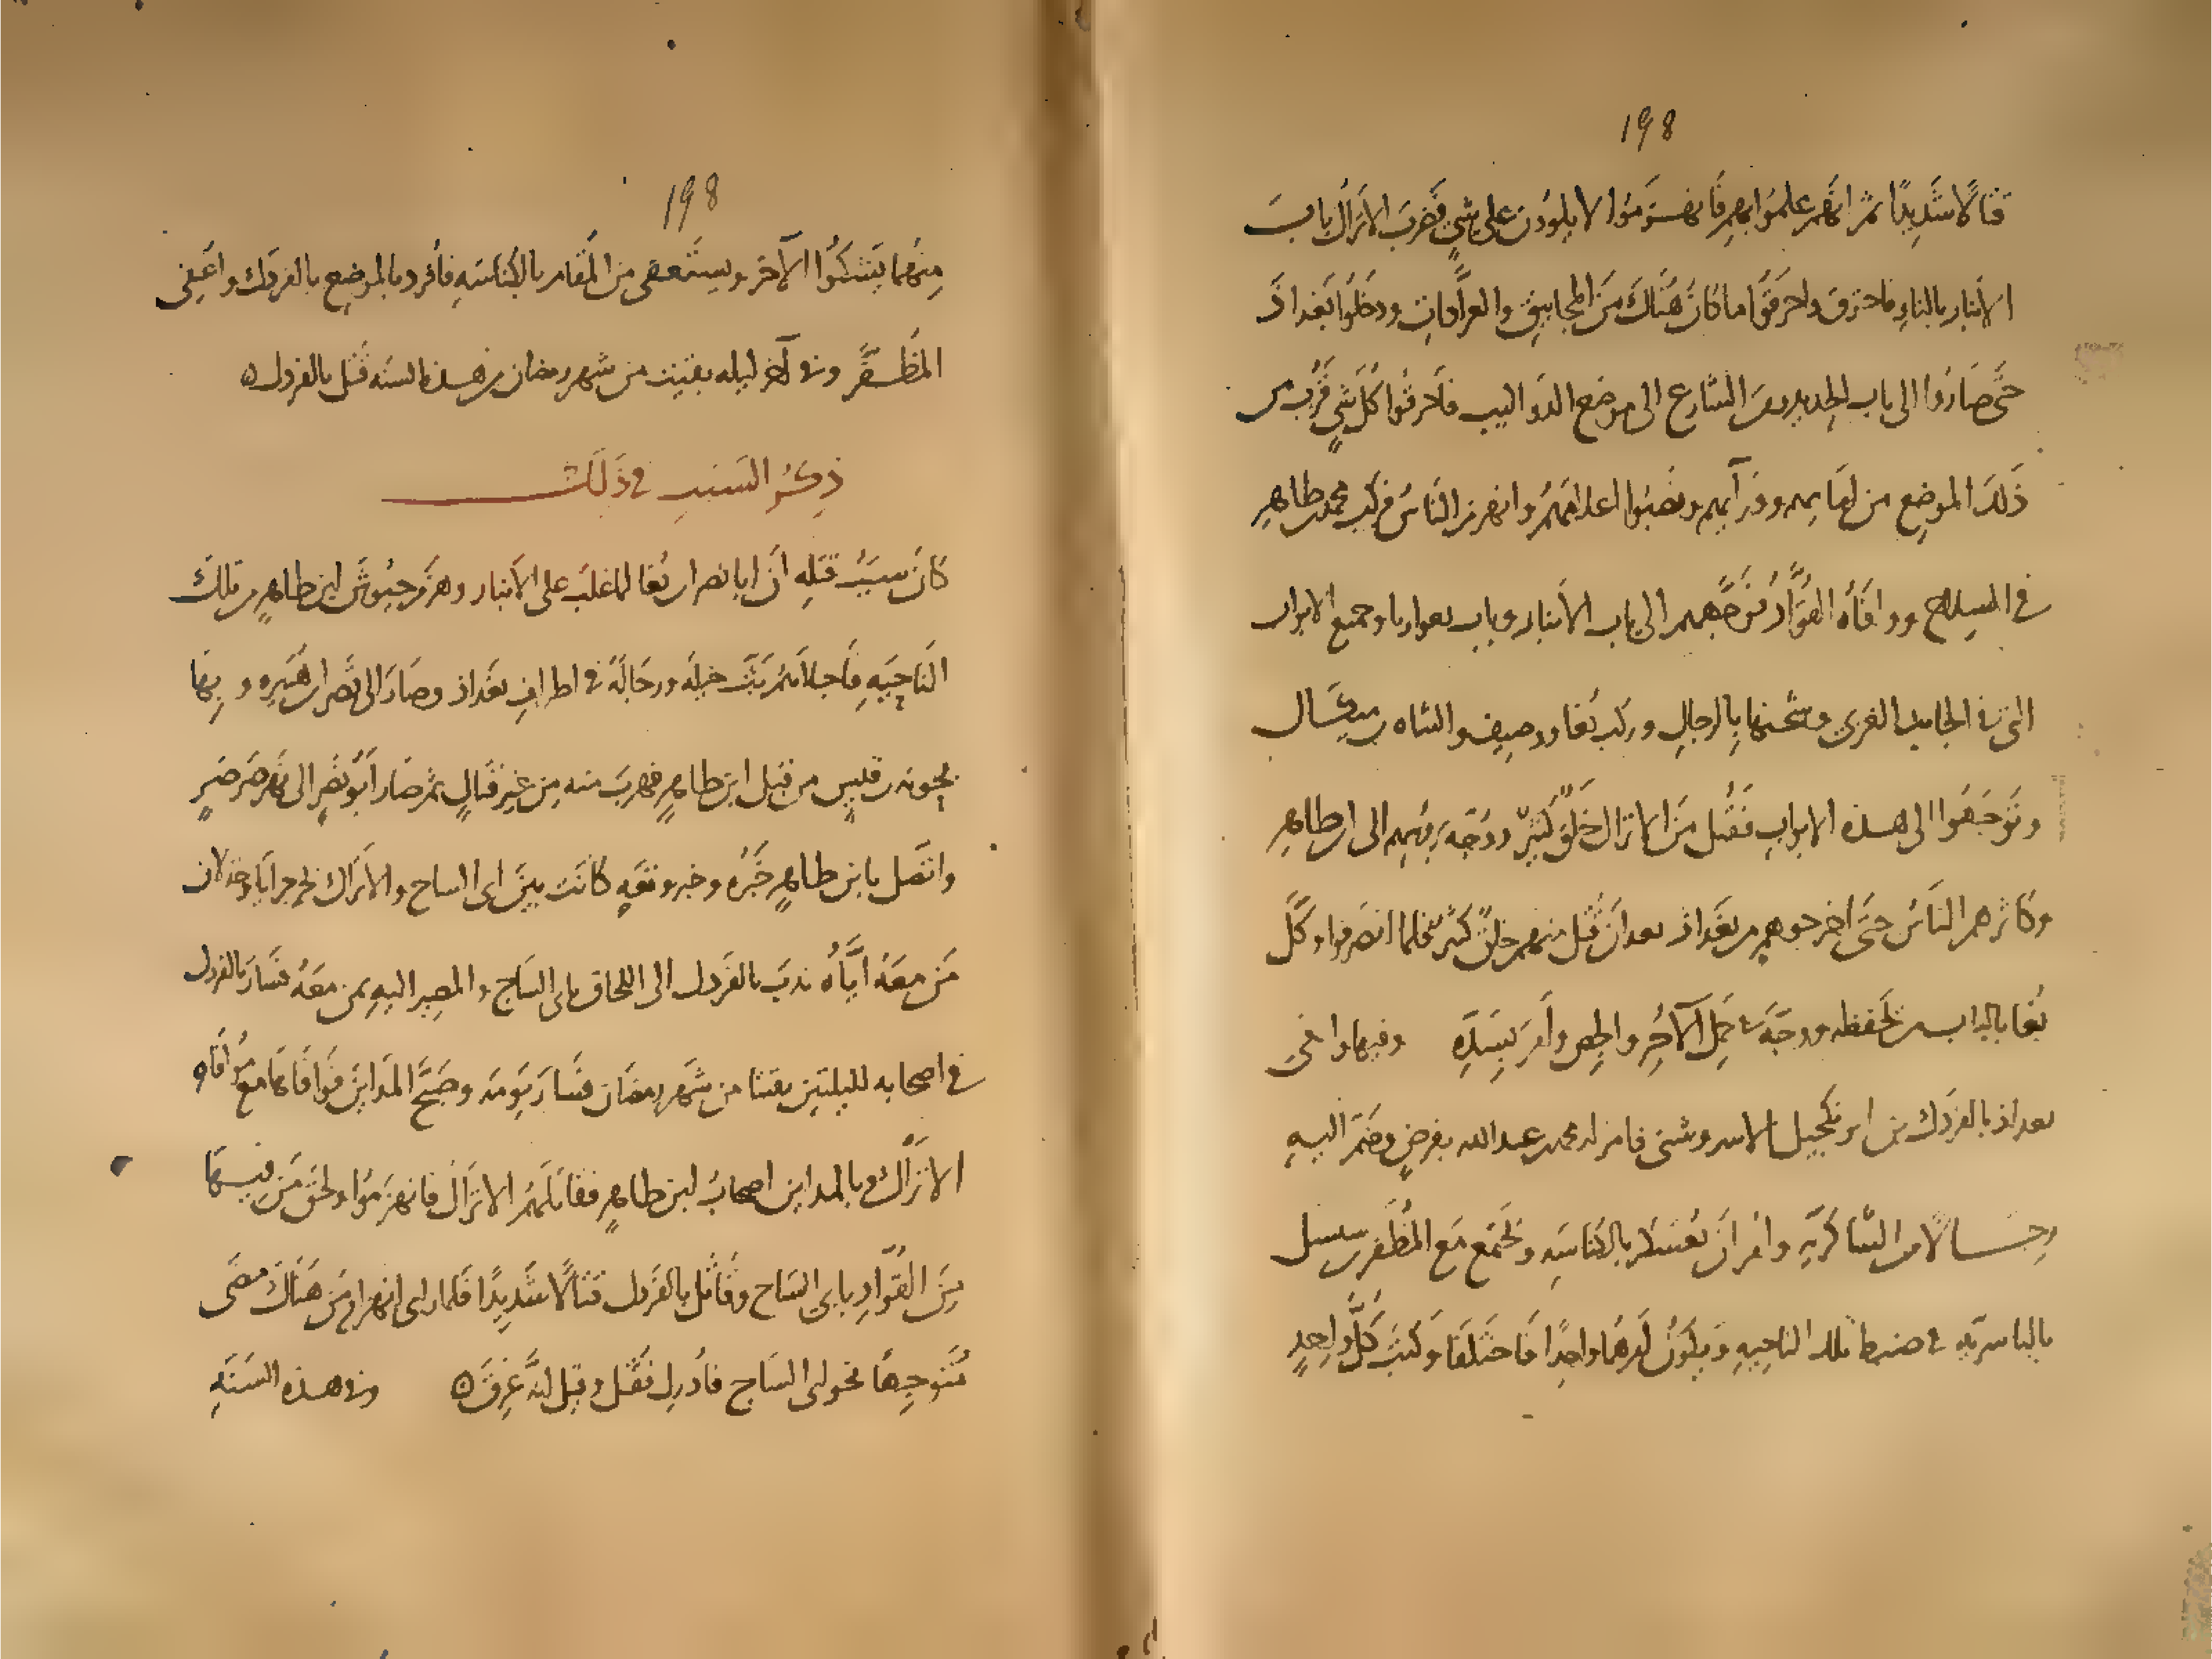 198
قتالًا شديدًا ثم انهم علموا بهم فانهزموا لا يلوون على شي فضرب الاتراك باب
الانبار بالنار فاحترق واحرقوا ما كان هناك من المجانيق والعرادات ودخلوا بغداذ
حتى صاروا الى باب الحديد ومن الشارع الى موضع الدواليب فاحرقوا كل شي قرب من
ذلك الموضع من امامهم وورآيهم ونصبوا اعلامهم وانهزم الناس فركب محمد بن طاهر
في السلاح ووافاه القواد فوجههم الى باب الانبار وباب وجميع الابواب
التي في الجانب الغربي وشحنها بالرجال وركب بغا ووصيف والشاه بن ميكال
وتوجهوا الى هذه الابواب فقتل من الاتراك خلق كثير ووجه برؤسهم الى ابن طاهر
وكاثرهم الناس حتى اخرجوهم من بغداذ بعد ان قتل منهم خلق كثير فلما انصرفوا وكل
بغا بالباب من يحفظه ووجه في حمل الآجر والجص وامر بسده وفيها وافى
بغداذ بالفردل بن الاسروشني فامر له محمد بن عبدالله بفرض وضم اليه
رجالا من الشاكرية وامر ان يعسكر بالكناسه ويجتمع مع المظفر بن سيسل
بالياسريه في ضبط تلك الناحيه ويكون امرهما واحدًا فاختلفا وكتب كل واحد
198
منهما يشكوا الآخر ويستعفى من المقام بالكناسه فافرد بالموضع بالفردل واعفى
المظفر وفي آخر ليله بقيت من شهر رمضان من هذه السنه قتل بالفردل
ذكر السبب في ذلك
كان سبب قتله ان ابا نصر بن بغا لما غلب على الانبار وهزم جيوش ابن طاهر من تلك
الناحيه فاجلاهم بث خيله ورجاله في اطراف بغداذ وصار الى قصر ابن هبيره وبها
بحونه بن قيس من قبل ابن طاهر فهرب منه من غير قتال ثم صار ابو نصر الى نهر صرصر
واتصل بابن طاهر خبره وخبر وقعه كانت بين ابي الساج والاتراك بجرجرايا وخذلان
من معه اياه ندب بالفردل الى اللحاق بابي الساج والمصير اليه بمن معه فسار بالفردل
في اصحابه لليلتين بقيتا من شهر رمضان فسار يومه وصبح المداين فوافاها مع موافاه
الاتراك وبالمداين اصحاب لابن طاهر فقاتلهم الاتراك فانهزموا ولحق من فيها
من القواد بابي الساج وقاتل بالفردل قتالًا شديدًا فلما راى انهزام من هناك مضى
متوجهًا نحو ابي الساج فادرك فقتل وقيل انه غرق وفي هذه السنه